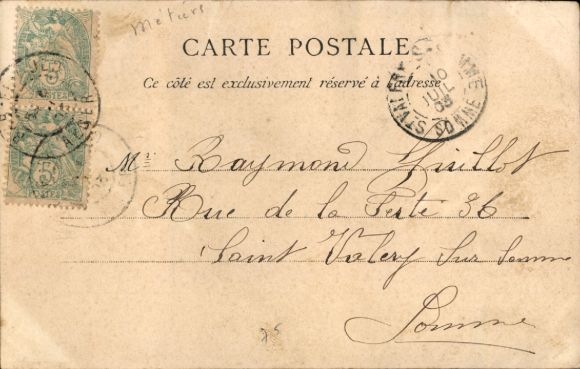 Métiers
CARTE POSTALE
Ce côté est exclusivement réservé à l'adresse
ST VALERY SOMME
10
JUIL
03
SOMME
ALGER
Mr Raymond
Rue de la Ferté 36
Saint Valery Sur Somme
Somme
75